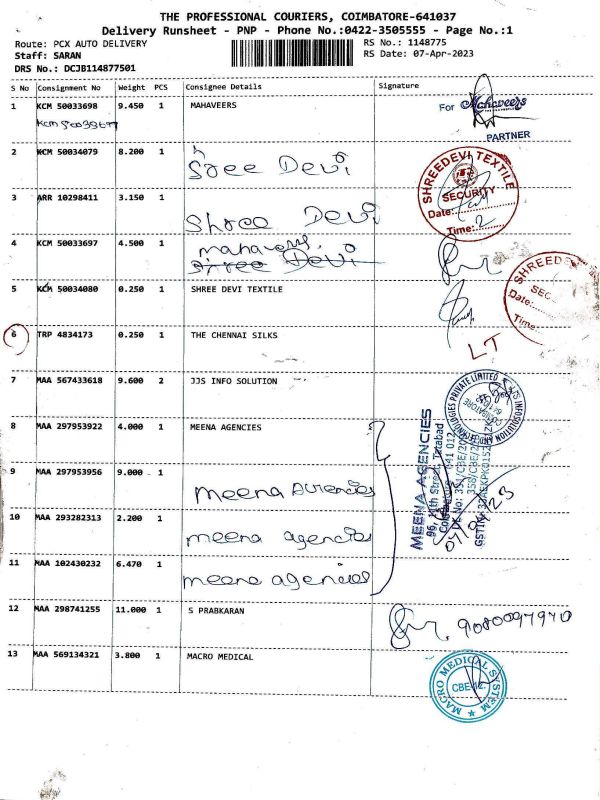 THE PROFESSIONAL COURIERS, COIMBATORE-641037
Delivery Runsheet - PNP - Phone No.:0422-3505555 - Page No.:1
Route: PCX AUTO DELIVERY
RS No.: 1148775
Staff: SARAN
RS Date: 07-Apr-2023
DRS No.: DCJB114877501
S No Consignment No Weight PCS Consignee Details Signature
1 KCM 50033698 9.450 1 MAHAVEERS
For Mahaveers
PARTNER
2 KCM 50034079 8.200 1 Sree Devi
SHREEDEVI TEXTILE
SECURITY
Date:
Time: 2
3 ARR 10298411 3.150 1 Shree Devi
4 KCM 50033697 4.500 1 mahaveers
Shree Devi
5 KCM 50034080 0.250 1 SHREE DEVI TEXTILE
SHREED
SEC
Date:
Time:
6 TRP 4834173 0.250 1 THE CHENNAI SILKS
LT
7 MAA 567433618 9.600 2 JJS INFO SOLUTION
8 MAA 297953922 4.000 1 MEENA AGENCIES
MEENA AGENCIES
96, 11th Street, Tatabad
9 MAA 297953956 9.000 1 meena agencies
10 MAA 293282313 2.200 1 meena agencies
11 MAA 102430232 6.470 1 meena agencies
12 MAA 298741255 11.000 1 S PRABKARAN
9080097970
13 MAA 569134321 3.800 1 MACRO MEDICAL
MACRO MEDICAL SYSTEM
CBE-12.